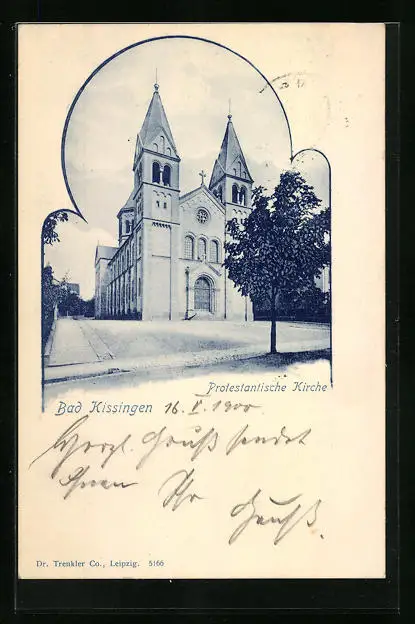 Protestantische Kirche
Bad Kissingen 16. V. 1900
Herzl. Gruß sendet
Ihnen Ihr
Dr. Trenkler Co., Leipzig. 5166